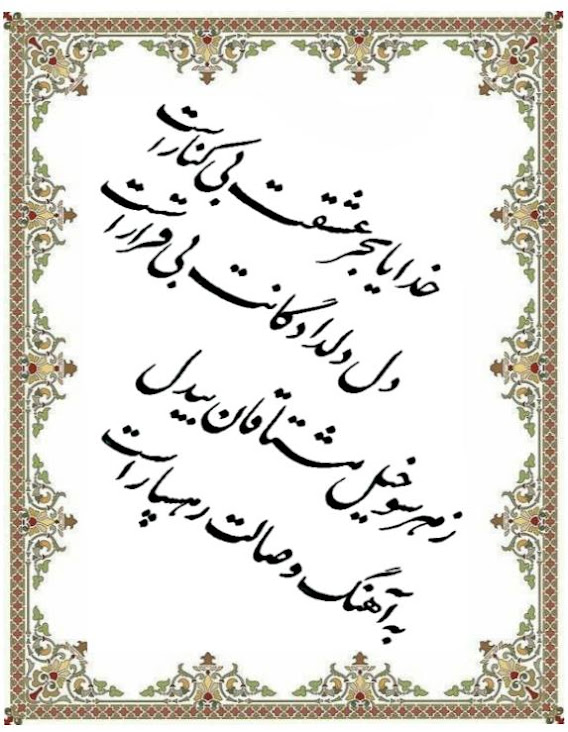 خدایا بحر عشقت بی کناراست
دل دلدادگانت بی قراراست
زهرسوخیل مشتاقان بیدل
به آهنگ وصالت رهسپاراست